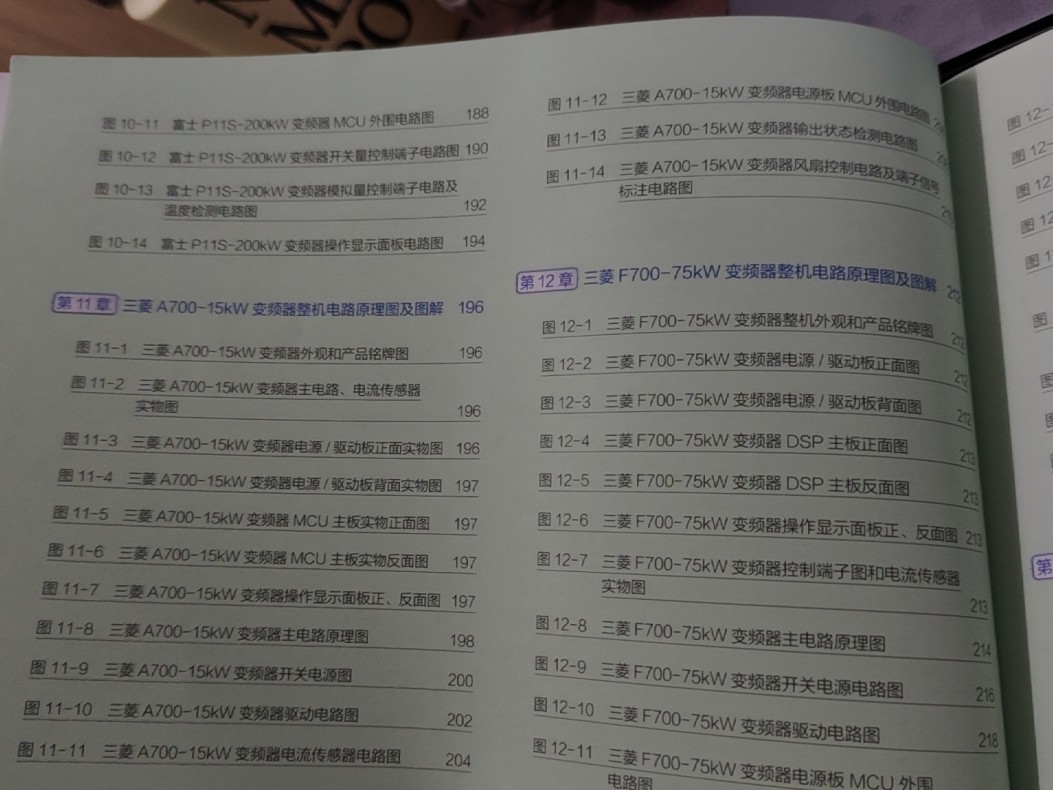 图 10-11 富士 P11S-200kW 变频器 MCU 外围电路图 188
图 10-12 富士 P11S-200kW 变频器开关量控制端子电路图 190
图 10-13 富士 P11S-200kW 变频器模拟量控制端子电路及
温度检测电路图 192
图 10-14 富士 P11S-200kW 变频器操作显示面板电路图 194
第 11 章 三菱 A700-15kW 变频器整机电路原理图及图解 196
图 11-1 三菱 A700-15kW 变频器外观和产品铭牌图 196
图 11-2 三菱 A700-15kW 变频器主电路、电流传感器
实物图 196
图 11-3 三菱 A700-15kW 变频器电源 / 驱动板正面实物图 196
图 11-4 三菱 A700-15kW 变频器电源 / 驱动板背面实物图 197
图 11-5 三菱 A700-15kW 变频器 MCU 主板实物正面图 197
图 11-6 三菱 A700-15kW 变频器 MCU 主板实物反面图 197
图 11-7 三菱 A700-15kW 变频器操作显示面板正、反面图 197
图 11-8 三菱 A700-15kW 变频器主电路原理图 198
图 11-9 三菱 A700-15kW 变频器开关电源图 200
图 11-10 三菱 A700-15kW 变频器驱动电路图 202
图 11-11 三菱 A700-15kW 变频器电流传感器电路图 204
图 11-12 三菱 A700-15kW 变频器电源板 MCU 外围电路图
图 11-13 三菱 A700-15kW 变频器输出状态检测电路图
图 11-14 三菱 A700-15kW 变频器风扇控制电路及端子信号
标注电路图
第 12 章 三菱 F700-75kW 变频器整机电路原理图及图解 212
图 12-1 三菱 F700-75kW 变频器整机外观和产品铭牌图 212
图 12-2 三菱 F700-75kW 变频器电源 / 驱动板正面图 212
图 12-3 三菱 F700-75kW 变频器电源 / 驱动板背面图 212
图 12-4 三菱 F700-75kW 变频器 DSP 主板正面图 213
图 12-5 三菱 F700-75kW 变频器 DSP 主板反面图 213
图 12-6 三菱 F700-75kW 变频器操作显示面板正、反面图 213
图 12-7 三菱 F700-75kW 变频器控制端子图和电流传感器
实物图 213
图 12-8 三菱 F700-75kW 变频器主电路原理图 214
图 12-9 三菱 F700-75kW 变频器开关电源电路图 216
图 12-10 三菱 F700-75kW 变频器驱动电路图 218
图 12-11 三菱 F700-75kW 变频器电源板 MCU 外围
电路图